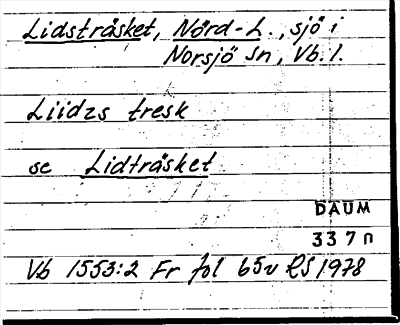 Lidsträsket, Nörd-L., sjö i
Norsjö sn, Vb.l.
Liidzs tresk
se Lidträsket
DAUM
337n
Vb 1553:2 Fr fol 65v LS 1978